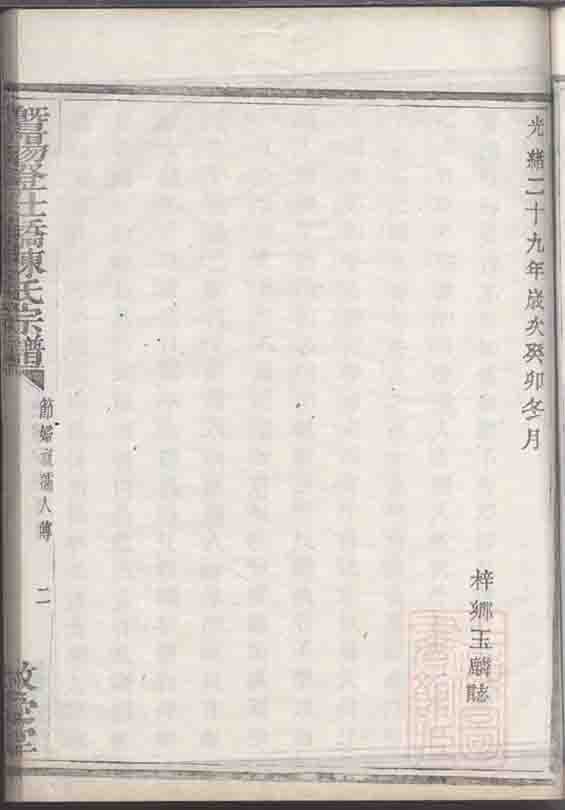 光緒二十九年歲次癸卯冬月
梓鄉王麟誌
暨陽登仕橋陳氏宗譜
節婦 孺人傳
二